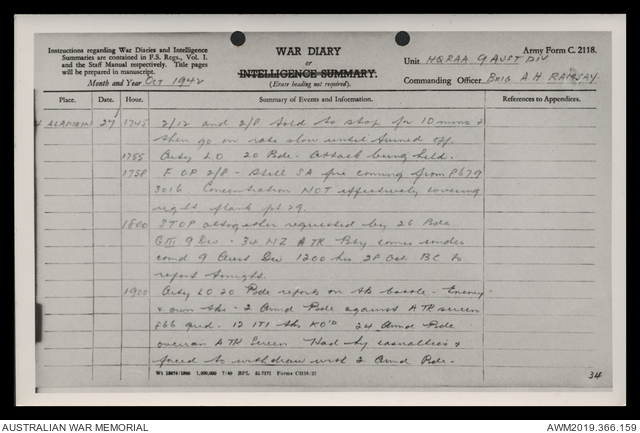 Instructions regarding War Diaries and Intelligence
Summaries are contained in F.S. Regs., Vol. I.
and the Staff Manual respectively. Title pages
will be prepared in manuscript.
Month and Year Oct 1942
WAR DIARY
or
INTELLIGENCE SUMMARY.
(Erase heading not required).
Army Form C. 2118.
Unit HQRAA 9 AUST DIV
Commanding Officer BRIG A H RAMSAY
Place. Date. Hour. Summary of Events and Information. References to Appendices.
ALAMEIN 27 1745 2/12 and 2/8 told to stop for 10 mins &
then go on rate slow until turned off.
1755 Arty LO 20 Bde. Attack being held.
1758 F OP 2/8 - Still SA fire coming from 8679
3016. Concentration NOT effectively covering
right flank pt 29.
1800 STOP altogether requested by 26 Bde
GIII 9 Div - 34 NZ A TK Bty comes under
comd 9 Aust Div 1200 hrs 28 Oct. BC to
report tonight.
1900 Arty LO 20 Bde reports on tk battle - Enemy
& own tks - 2 Armd Bde against A TK screen
866 grid. 12 ITI tks KO'D 24 Armd Bde
overran A TK Screen Had hy casualties &
forced to withdraw with 2 Armd Bde.
Forms C2118/22
34
AUSTRALIAN WAR MEMORIAL
AWM2019.366.159